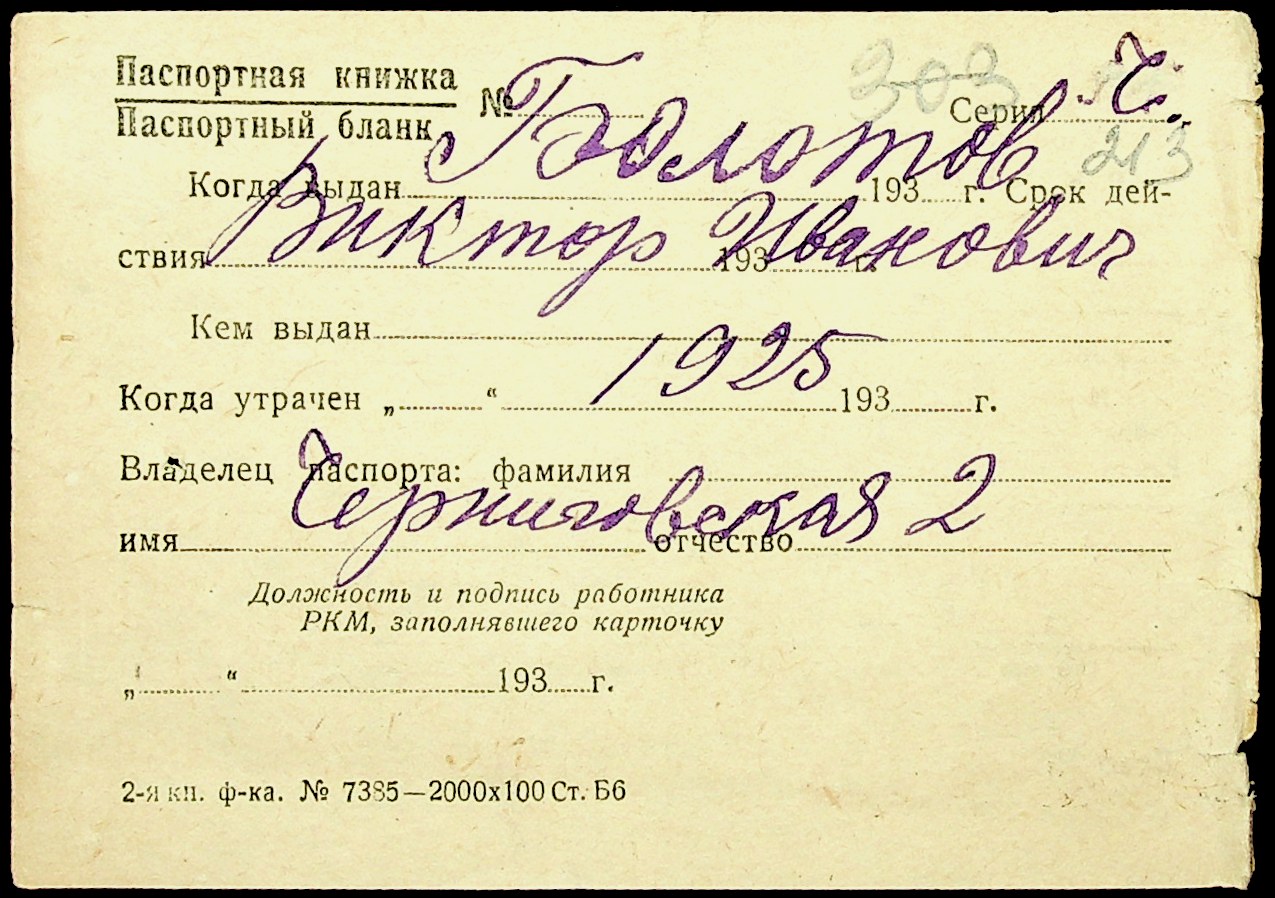 303 Ч.
Паспортная книжка
Паспортный бланк № Серия
213
Болотов
Когда выдан 193 г. Срок дей-
Виктор Иванович
ствия 193 г.
Кем выдан
1925
Когда утрачен „ “ 193 г.
Владелец паспорта: фамилия
Черниговская 2
имя отчество
Должность и подпись работника
РКМ, заполнявшего карточку
„ “ 193 г.
2-я кн. ф-ка. № 7385—2000х100 Ст. Б6